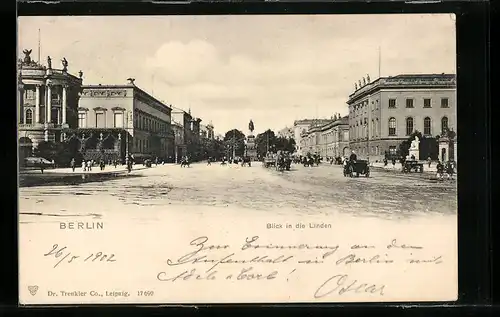 BERLIN
Blick in die Linden
26/5 1902
Zur Erinnerung an den
Aufenthalt in Berlin mit
Adele &
Oscar
Dr. Trenkler Co., Leipzig. 17690